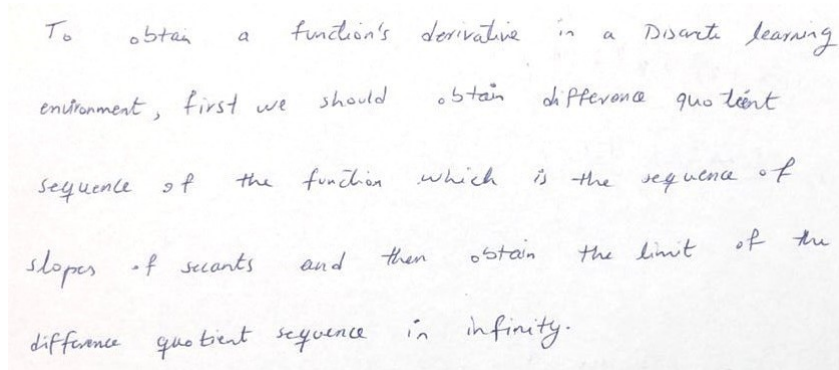 To obtain a function's derivative in a Discrete learning
environment, first we should obtain difference quotient
sequence of the function which is the sequence of
slopes of secants and then obtain the limit of the
difference quotient sequence in infinity.